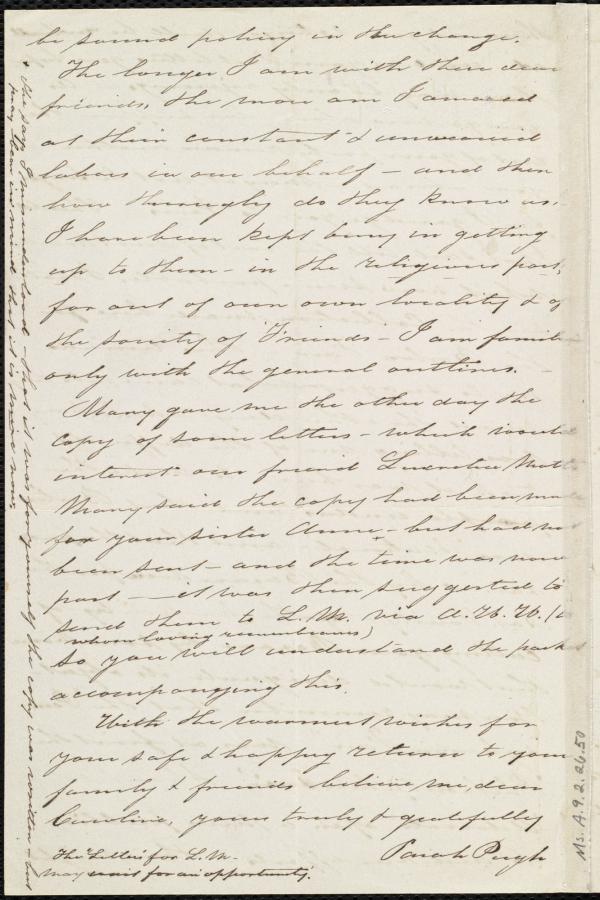 be sound policy in the change.
The longer I am with these dear
friends, the more am I amazed
at their constant & unwearied
labors in our behalf – and then
how thoroughly do they know us.
I have been kept busy in getting
up to them – in the religious part,
for out of our own locality & of
the society of "Friends" – I am famil
only with the general outlines.
Mary gave me the other day the
copy of some letters – which would
interest our friend Lucretia Mott
Mary said the copy had been ma
for your sister Anne, – but had no
been sent – and the time was now
past – it was then suggested to
send them to L. M. via
whom loving remembrances)
So you will understand the pack
accompanying this.
With the warmest wishes for
your safe & happy return to your
family & friends believe me, dear
Caroline, yours truly & gratefully
Sarah Pugh
The "Letters" for L. M.
may wait for an opportunity.
She says I misunderstand – that it was for yourself the copy was written – but
may bear in mind that it is
Ms. A.9.2.26.50